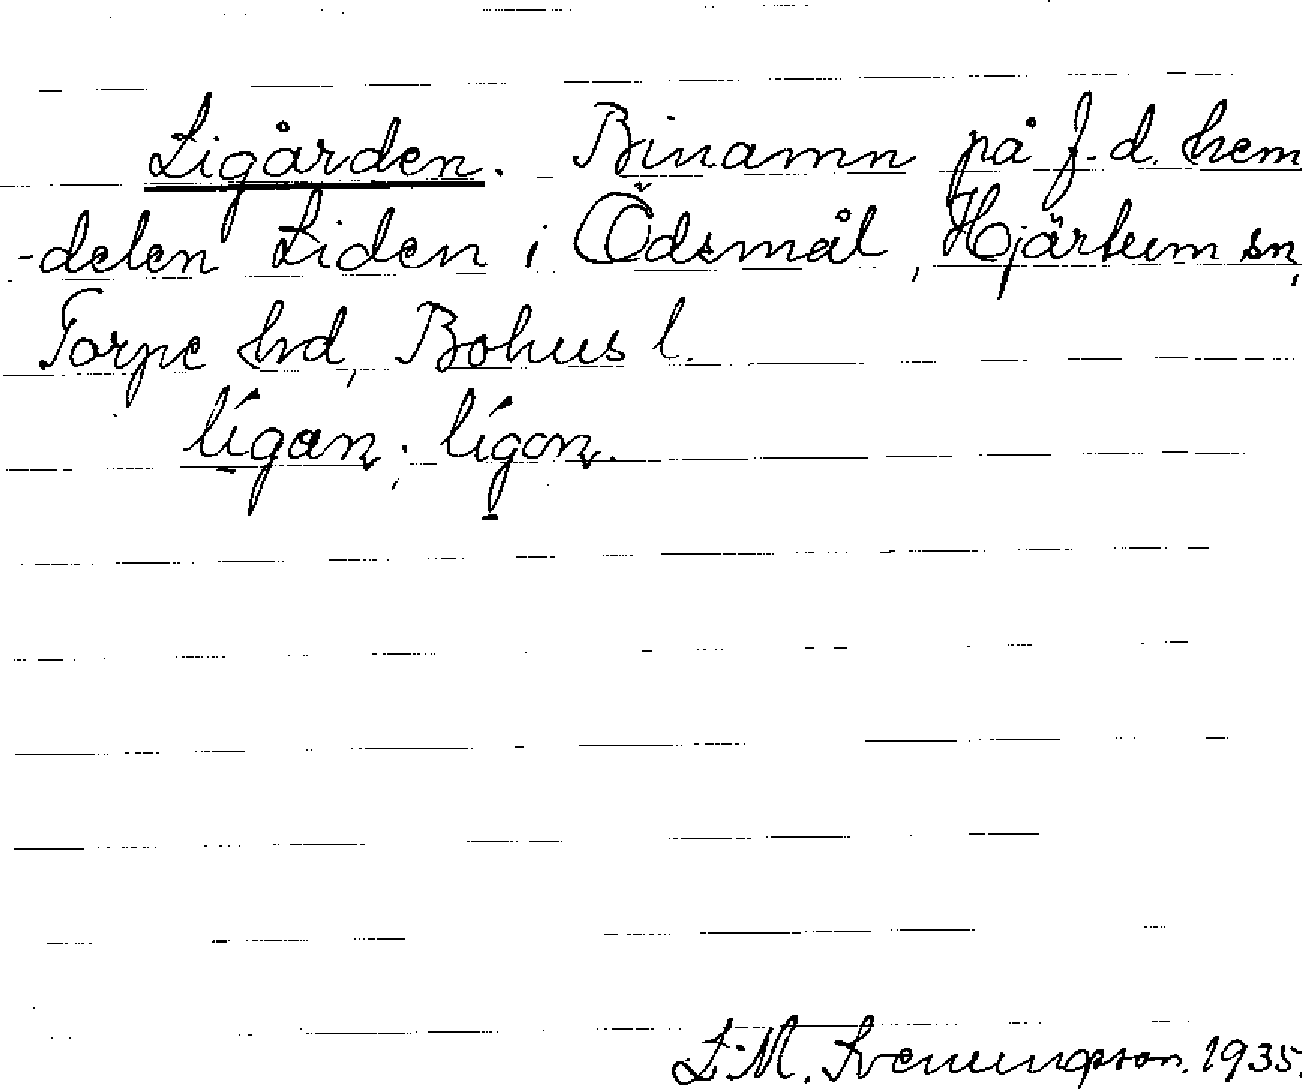 Ligården. Binamn på f.d. hem
-delen Liden i Ödsmål, Hjärtum sn,
Torpe hrd, Bohus l.
lígan; lígon.
L.M. Svenungsson. 1935.